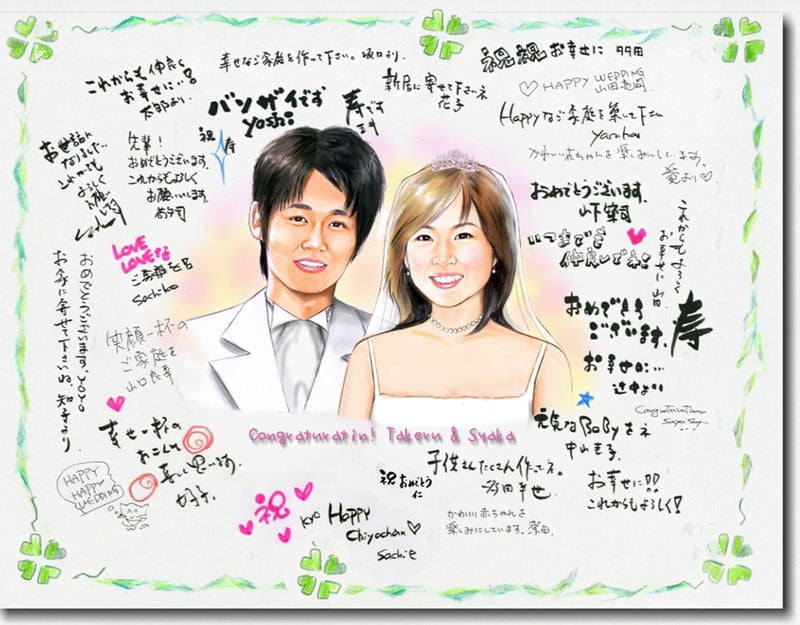 幸せなご家庭を作って下さい。坂口より.
これからも仲良く
お幸せに…!
太郎より.
バンザイです
yoshi
寿です
新居に寄せて下さいネ
花子
祝祝お幸せに
HAPPY WEDDING
Happyなご家庭を築いて下さい
かわいい赤ちゃんを楽しみにしています。
お世話に
なりました…
これからも
よろしく
お願い
祝 寿
先輩!
おめでとうございます。
これからもよろしく
お願いします。
おめでとうございます。
いつまでも
仲良しでネ
これからもよろしく
お幸せに
LOVE
LOVEな
ご家庭を
Sachiko
おめでとうございます。YOYO
お家に寄せて下さいね。知子より
笑顔一杯の
ご家庭を
おめでとう
ございます。
寿
お幸せに…
Congraturatin! Takeru & Syaka
元気なBaBYをネ
幸せ一杯の
HAPPY
HAPPY
WEDDING
祝おめでとう
仁
子供さんたくさん作ってネ。
お幸せに!!
これからもよろしく!
祝
Kyo Happy
Chiyochan
Sachie
かわいい赤ちゃんを
楽しみにしています。